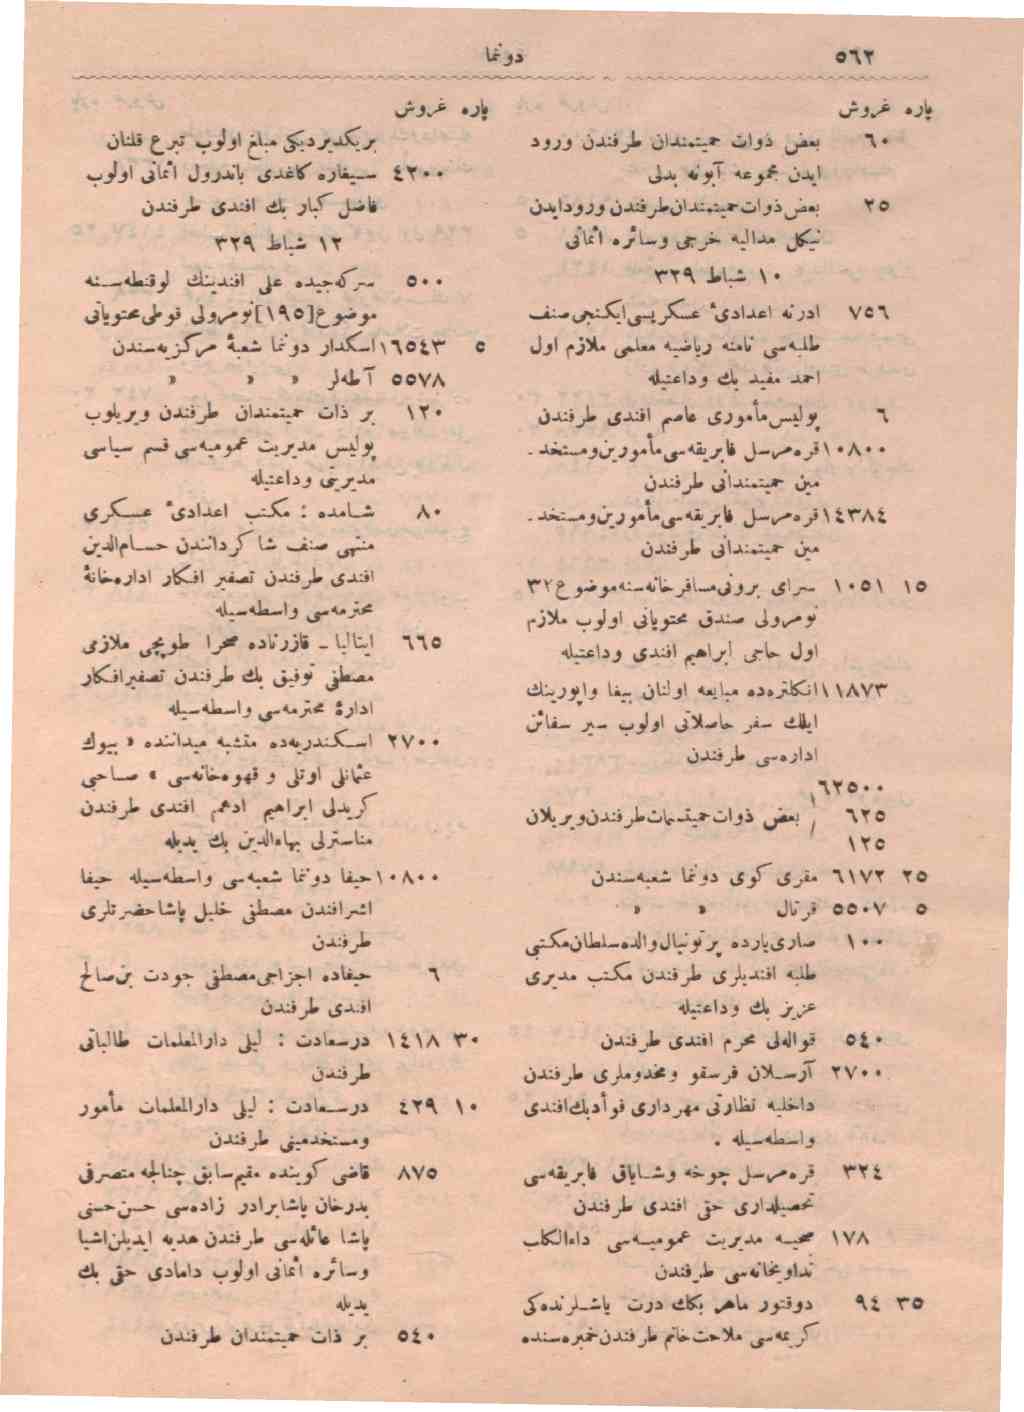 ٥٦٢ دونما
پاره غروش
٦٠ بعض ذوات حمیتمندان طرفندن ورود
ایدن مجموعه آبونه بدلی
٢٥ بعض ذوات حمیتمندان طرفندن ورود ایدن
نیكل مدالیه خرجی وسائره اثمانی
١٠ شباط ٣٢٩
٧٥٦ ادرنه اعدادیٔ عسكریسی ایكنجی صنف
طلبه‌سی نامنه ریاضیه معلمی ملازم اول
احمد مفید بك وداعتیله
٦ پولیس مأموری عاصم افندی طرفندن
١٠٨٠٠ قره‌مرسل فابریقه‌سی مأمورین ومستخد ـ
مین حمیتمندانی طرفندن
١٤٣٨٤ قره‌مرسل فابریقه‌سی مأمورین ومستخد ـ
مین حمیتمندانی طرفندن
١٥ ١٠٥١ سرای برونی مسافرخانه‌سنه موضوع ٣٢
نومرولی صندق محتویاتی اولوب ملازم
اول حاجی ابراهیم افندی وداعتیله
١١٨٧٣ انكلتره‌ده مبایعه اولنان بیفا واپورینك
ایلك سفر حاصلاتی اولوب سیر سفائن
اداره‌سی طرفندن
٦٢٥٠٠
٦٢٥ بعض ذوات حمیتسمات طرفندن ویریلان
١٢٥
٢٥ ٦١٧٢ مقری كوی دونما شعبه‌سندن
٥ ٥٥٠٧ قرتال » »
١٠٠ صاری‌یارده پرتونیال والده سلطان مكتبی
طلبه افندیلری طرفندن مكتب مدیری
عزیز بك وداعتیله
٥٤٠ قواله‌لی محرم افندی طرفندن
٢٧٠٠ آرسلان فرسقو ومخدوملری طرفندن
داخلیه نظارتی مهرداری فوأد بك افندی
واسطه‌سیله .
٣٢٤ قره‌مرسل چوخه وشایاق فابریقه‌سی
تحصیلداری حقی افندی طرفندن
١٧٨ صحیه مدیریت عمومیه‌سی داءالكلب
تداویخانه‌سی طرفندن
٣٥ ٩٤ دوقتور ماهر بكك درت یاشلرنده‌كی
كریمه‌سی ملاحت خانم طرفندن خمبره‌سنده
پاره غروش
بریكدیردیكی مبلغ اولوب تبرع قلنان
٤٢٠٠ سیغاره كاغدی باندرول اثمانی اولوب
فاضل كبار بك افندی طرفندن
١٢ شباط ٣٢٩
٥٠٠ سركه‌جیده علی افندینك لوقنطه‌سنه
موضوع [١٩٥] نومرولی قوطی محتویاتی
٥ ١٦٥٤٣ اسكدار دونما شعبهٔ مركزیه‌سندن
٥٥٧٨ آطه‌لر » » »
١٢٠ بر ذات حمیتمندان طرفندن ویریلوب
پولیس مدیریت عمومیه‌سی قسم سیاسی
مدیریتی وداعتیله
٨٠ شامده : مكتب اعدادیٔ عسكری
منتهی صنف شاكرداندن حسام‌الدین
افندی طرفندن تصفیر افكار اداره‌خانهٔ
محترمه‌سی واسطه‌سیله
٦٦٥ ایتالیا ـ قازرتاده صحرا طوپجی ملازمی
مصطفی توفیق بك طرفندن تصفیرافكار
ادارهٔ محترمه‌سی واسطه‌سیله
٢٧٠٠ اسكندریه‌ده منشیه میداننده « بیوك
عثمانلی اوتلی و قهوه‌خانه‌سی » صاحبی
كریدلی ابراهیم ادهم افندی طرفندن
مناسترلی بهاءالدین بك یدیله
١٠٨٠٠ حیفا دونما شعبه‌سی واسطه‌سیله حیفا
اشرافندن مصطفی خلیل پاشا حضرتلری
طرفندن
٦ حیفاده اجزاجی مصطفی جودت بن صالح
افندی طرفندن
٣٠ ١٤١٨ درسعادت : لیلی دارالمعلمات طالباتی
طرفندن
١٠ ٤٢٩ درسعادت : لیلی دارالمعلمات مأمور
ومستخدمینی طرفندن
٨٧٥ قاضی كوینده مقیم سابق چتالجه متصرفی
بدرخان پاشا برادر زاده‌سی حسن حسنی
پاشا عائله‌سی طرفندن هدیه ایدیلن اشیا
وسائره اثمانی اولوب دامادی حقی بك
یدیله
٥٤٠ بر ذات حمیتمندان طرفندن